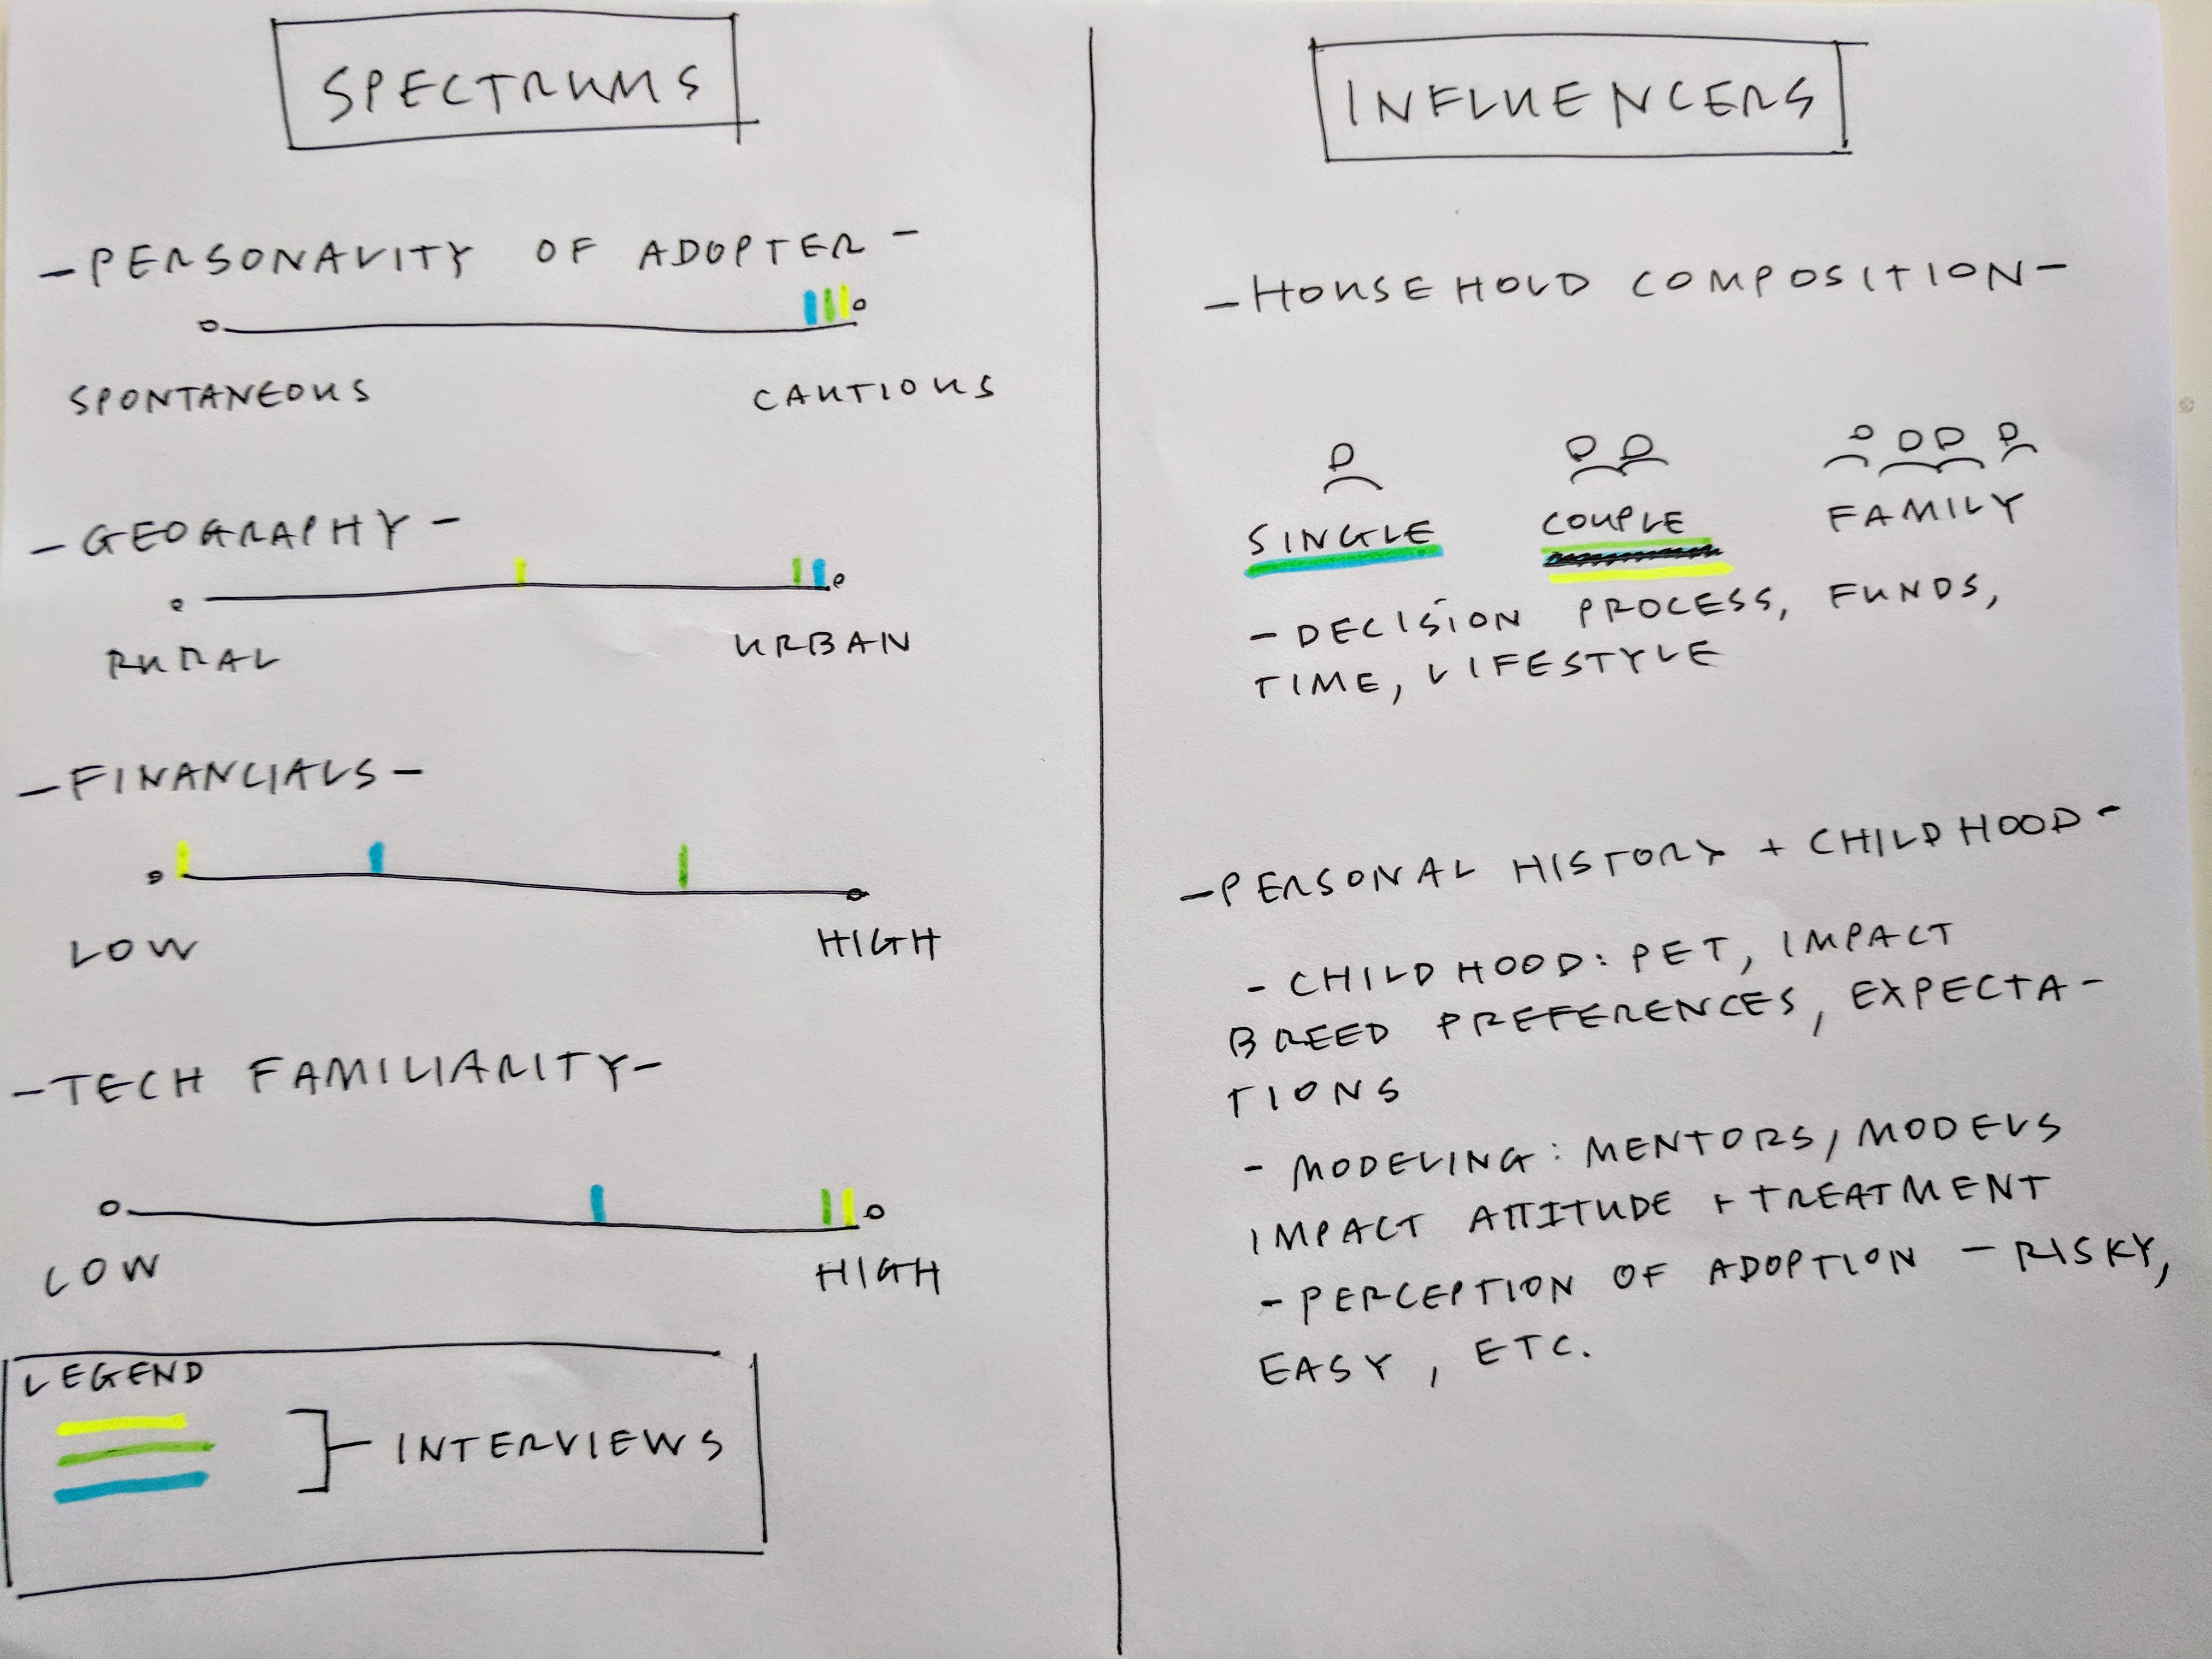 SPECTRUMS
- PERSONALITY OF ADOPTER -
SPONTANEOUS
CAUTIOUS
- GEOGRAPHY -
RURAL
URBAN
- FINANCIALS -
LOW
HIGH
- TECH FAMILIARITY -
LOW
HIGH
LEGEND
INTERVIEWS
INFLUENCERS
- HOUSEHOLD COMPOSITION -
SINGLE
COUPLE
FAMILY
- DECISION PROCESS, FUNDS,
TIME, LIFESTYLE
- PERSONAL HISTORY + CHILDHOOD -
- CHILDHOOD: PET, IMPACT
BREED PREFERENCES, EXPECTA-
TIONS
- MODELING: MENTORS, MODELS
IMPACT ATTITUDE + TREATMENT
- PERCEPTION OF ADOPTION - RISKY,
EASY, ETC.